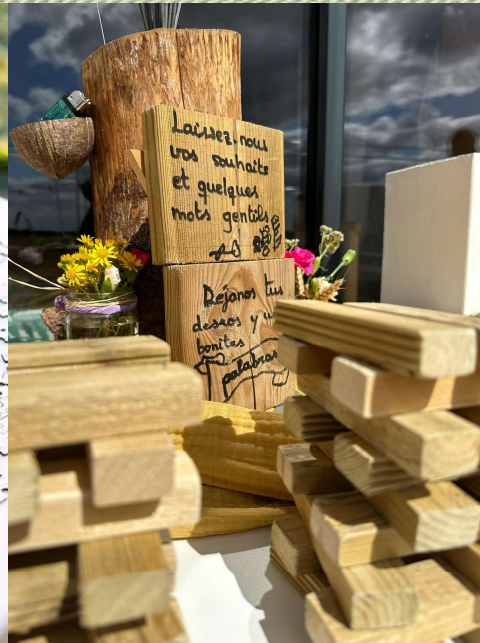 Laissez-nous
vos souhaits
et quelques
mots gentils
Dejanos tus
deseos y u
bonitas
palabras